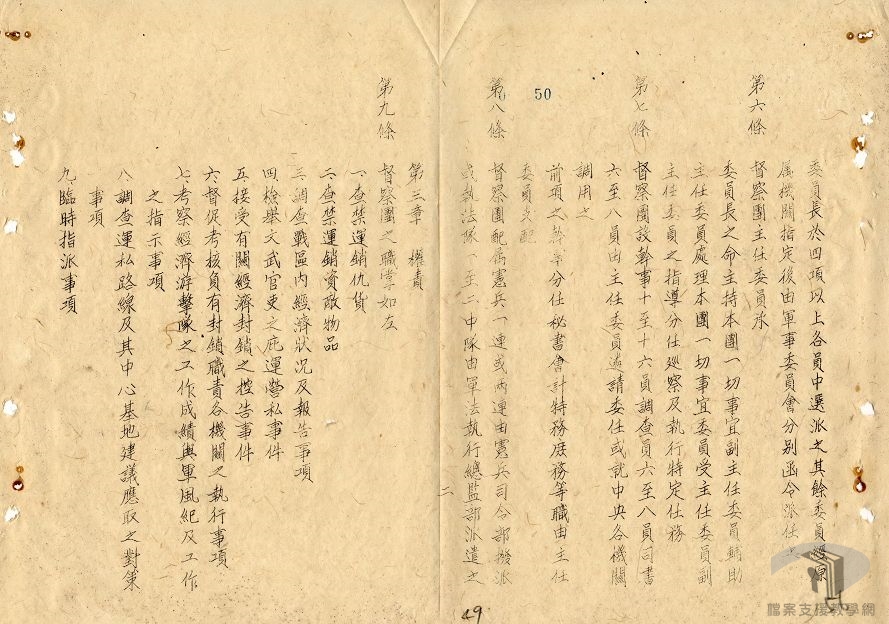 委員長於四項以上各員中選派之其餘委員經原
屬機關指定後由軍事委員會分别函令派任之
第六條 督察團主任委員承
委員長之命主持本團一切事宜副主任委員輔助
主任委員處理本團一切事宜委員受主任委員副
主任委員之指導分任廵察及執行特定任務
第七條 督察團設幹事十至十六員調查員六至八員司書
六至八員由主任委員遴請委任或就中央各機關
調用之
前項之幹事分任秘書會計特務庶務等職由主任
委員支配
第八條 督察團配屬憲兵一連或两連由憲兵司令部撥派
或執法隊一至二中隊由軍法執行總監部派遣之
二
第三章 權責
第九條 督察團之職掌如左
一、查禁運銷仇貨
二、查禁運銷資敵物品
三、調查戰區內經濟狀况及報告事項
四、檢舉文武官吏之庇運營私事件
五、接受有關經濟封鎖之控告事件
六、督促考核負有封鎖職責各機關之執行事項
七、考察經濟游擊隊之工作成績與軍風紀及工作
之指示事項
八、調查運私路線及其中心基地建議應取之對策
事項
九、臨時指派事項
50
49
檔案支援教學網